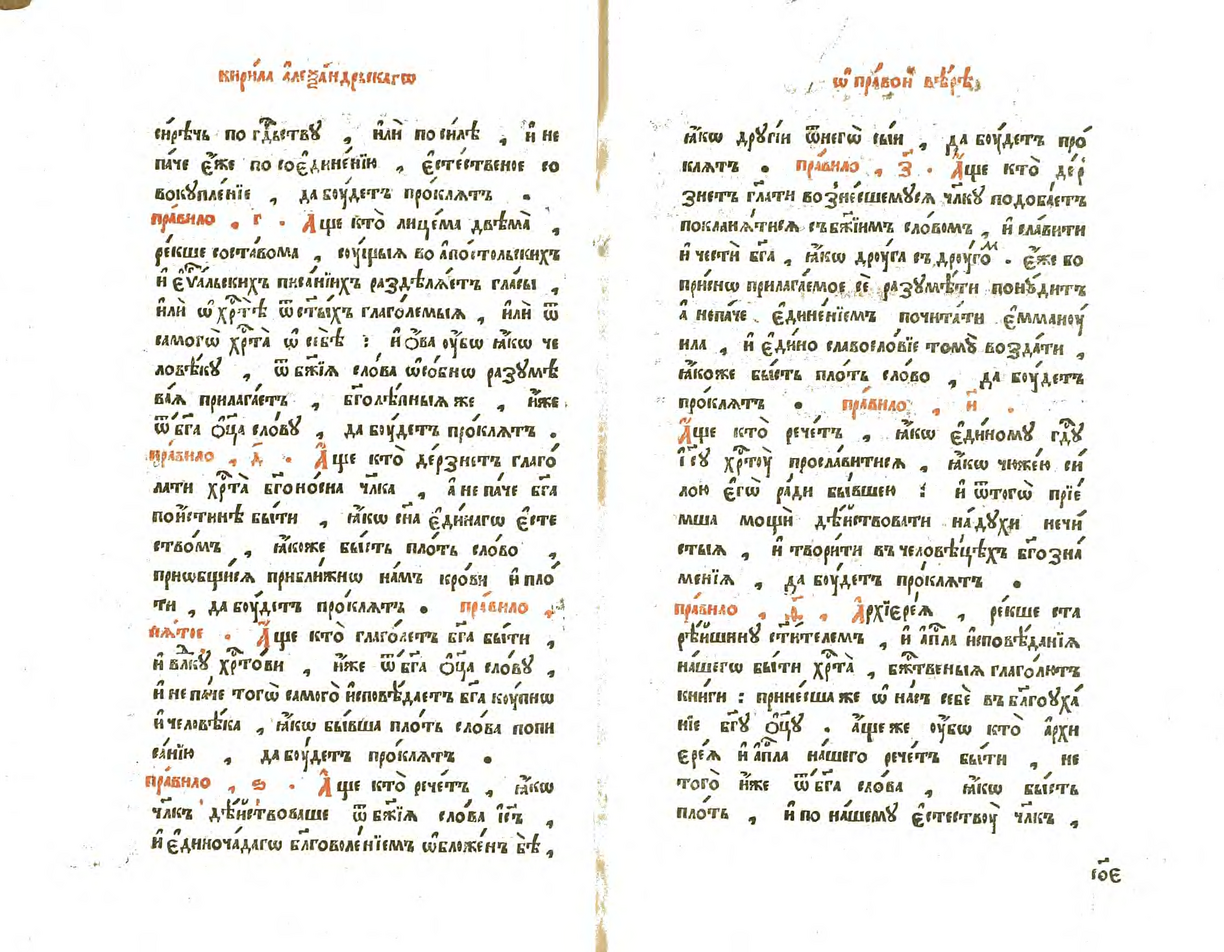 кири́ла а҆леѯа́ндрьскагѡ
си́рѣчь по гд҇ьствꙋ , и҆лѝ по си́лѣ , и҆ не
паче є҆́же по сое҆дине́нїю , є҆сте́ственое со
вокꙋпле́нїе , да боу́детъ про́клятъ .
пра́вило . г . А҆́ще кто̀ лице́ма двѣма̀ ,
ре́кше соста́вома , соу́щыѧ во а҆по́стольскихъ
и҆ є҆ѵ҃альскихъ писа́нїихъ раздѣлѧ́етъ гла́сы ,
и҆лѝ ѡ҆ хр҇тѣ̀ ѿ ст҃ы́хъ глаго́лемыѧ , и҆лѝ ѿ
самогѡ̀ хр҇та̀ ѡ҆ себѣ̀ : и҆ о҆́ва оу҆́бѡ ꙗ҆́кѡ че
ловѣ́кꙋ , ѿ бж҃їѧ сло́ва ѡ҆со́бнѡ разꙋмѣ
ва́ѧ прилага́етъ , бг҃олѣ́пныѧ же , ꙗ҆́же
ѿ бг҃а ѻ҆ц҃а̀ сло́вꙋ , да боу́детъ про́клятъ .
пра́вило , д . А҆́ще кто̀ де́рзнетъ глаго́
лати хр҇та̀ бг҃оно́сна чл҃ка , а҆ не па́че бг҃а
пои́стинѣ бы́ти , ꙗ҆́кѡ сн҃а є҆ди́нагѡ є҆сте
ство́мъ , ꙗ҆́коже бы́сть пло́ть сло́во ,
приѡбщи́сѧ прибли́жнѡ на́мъ кро́ви и҆ пло́
ти , да боу́детъ про́клятъ . пра́вило ,
пѧ́тое . А҆́ще кто̀ глаго́летъ бг҃а бы́ти ,
и҆ влк҃ꙋ хр҇то́ви , и҆́же ѿ бг҃а ѻ҆ц҃а̀ сло́вꙋ ,
и҆ не па́че того̀ самого̀ и҆сповѣ́даетъ бг҃а коу́пнѡ
и҆ человѣ́ка , ꙗ҆́кѡ бы́вша пло́ть сло́ва по пи
са́нїю , да боу́детъ про́клятъ .
пра́вило , ѕ . А҆́ще кто̀ рече́тъ , ꙗ҆́кѡ
чл҃къ дѣ́йствоваше ѿ бж҃їѧ сло́ва і҆с҃ъ ,
и҆ є҆диноча́дагѡ бл҃говоле́нїемъ ѡ҆бложе́нъ бѣ̀ ,
ѡ҆ пра́вой вѣ́рѣ
ꙗ҆́кѡ дрꙋгі́й ѿ негѡ̀ сы́й , да боу́детъ про́
клятъ . пра́вило , з . А҆́ще кто̀ де́р
знетъ гл҃ати возне́сшемꙋсѧ чл҃кꙋ подоба́етъ
покланѧ́тисѧ съ бж҃їимъ сло́вомъ , и҆ сла́вити
и҆ че́сти бг҃а , ꙗ҆́кѡ дроу́га съ дроу́гом . є҆́же бо
при́снѡ прилага́емое сѐ разꙋмѣ́ти понꙋ́дитъ
а҆ непа́че . є҆дине́нїемъ почита́ти є҆мманоу
и́ла , и҆ є҆ди́но славосло́вїе томꙋ̀ возда́ти ,
ꙗ҆́коже бы́сть пло́ть сло́во , да боу́детъ
про́клятъ . пра́вило , и҃ .
А҆́ще кто̀ рече́тъ , ꙗ҆́кѡ є҆ди́номꙋ гд҇ꙋ
і҆с҃ꙋ хр҇тоу̀ просла́витисѧ , ꙗ҆́кѡ чюже́ю си́
лою є҆гѡ̀ ра́ди бы́вшею : и҆ ѿ тогѡ̀ прїе́
мша мо́щи дѣ́йствовати на дꙋ́хи нечи́
стыѧ , и҆ твори́ти въ человѣ́цѣхъ бг҃озна́
менїѧ , да боу́детъ про́клятъ .
пра́вило , ѳ , А҆рхїере́ѧ , ре́кше ста
рѣ́йшинꙋ ст҃и́телемъ , и҆ а҆пл҃а и҆сповѣ́данїѧ
на́шегѡ бы́ти хр҇та̀ , бж҇твеныѧ глаго́лютъ
кни́ги : прине́сша же ѡ҆ на́съ себѐ въ бл҃гоуха́
нїе бг҃ꙋ ѻ҆ц҃ꙋ̀ . а҆́ще же оу҆́бѡ кто̀ а҆рхи
ере́ѧ и҆ а҆пл҃а на́шего рече́тъ бы́ти , не
того̀ и҆́же ѿ бг҃а сло́ва , ꙗ҆́кѡ бы́сть
пло́ть , и҆ по на́шемꙋ є҆стествоу̀ чл҃къ ,
сѻ҃є